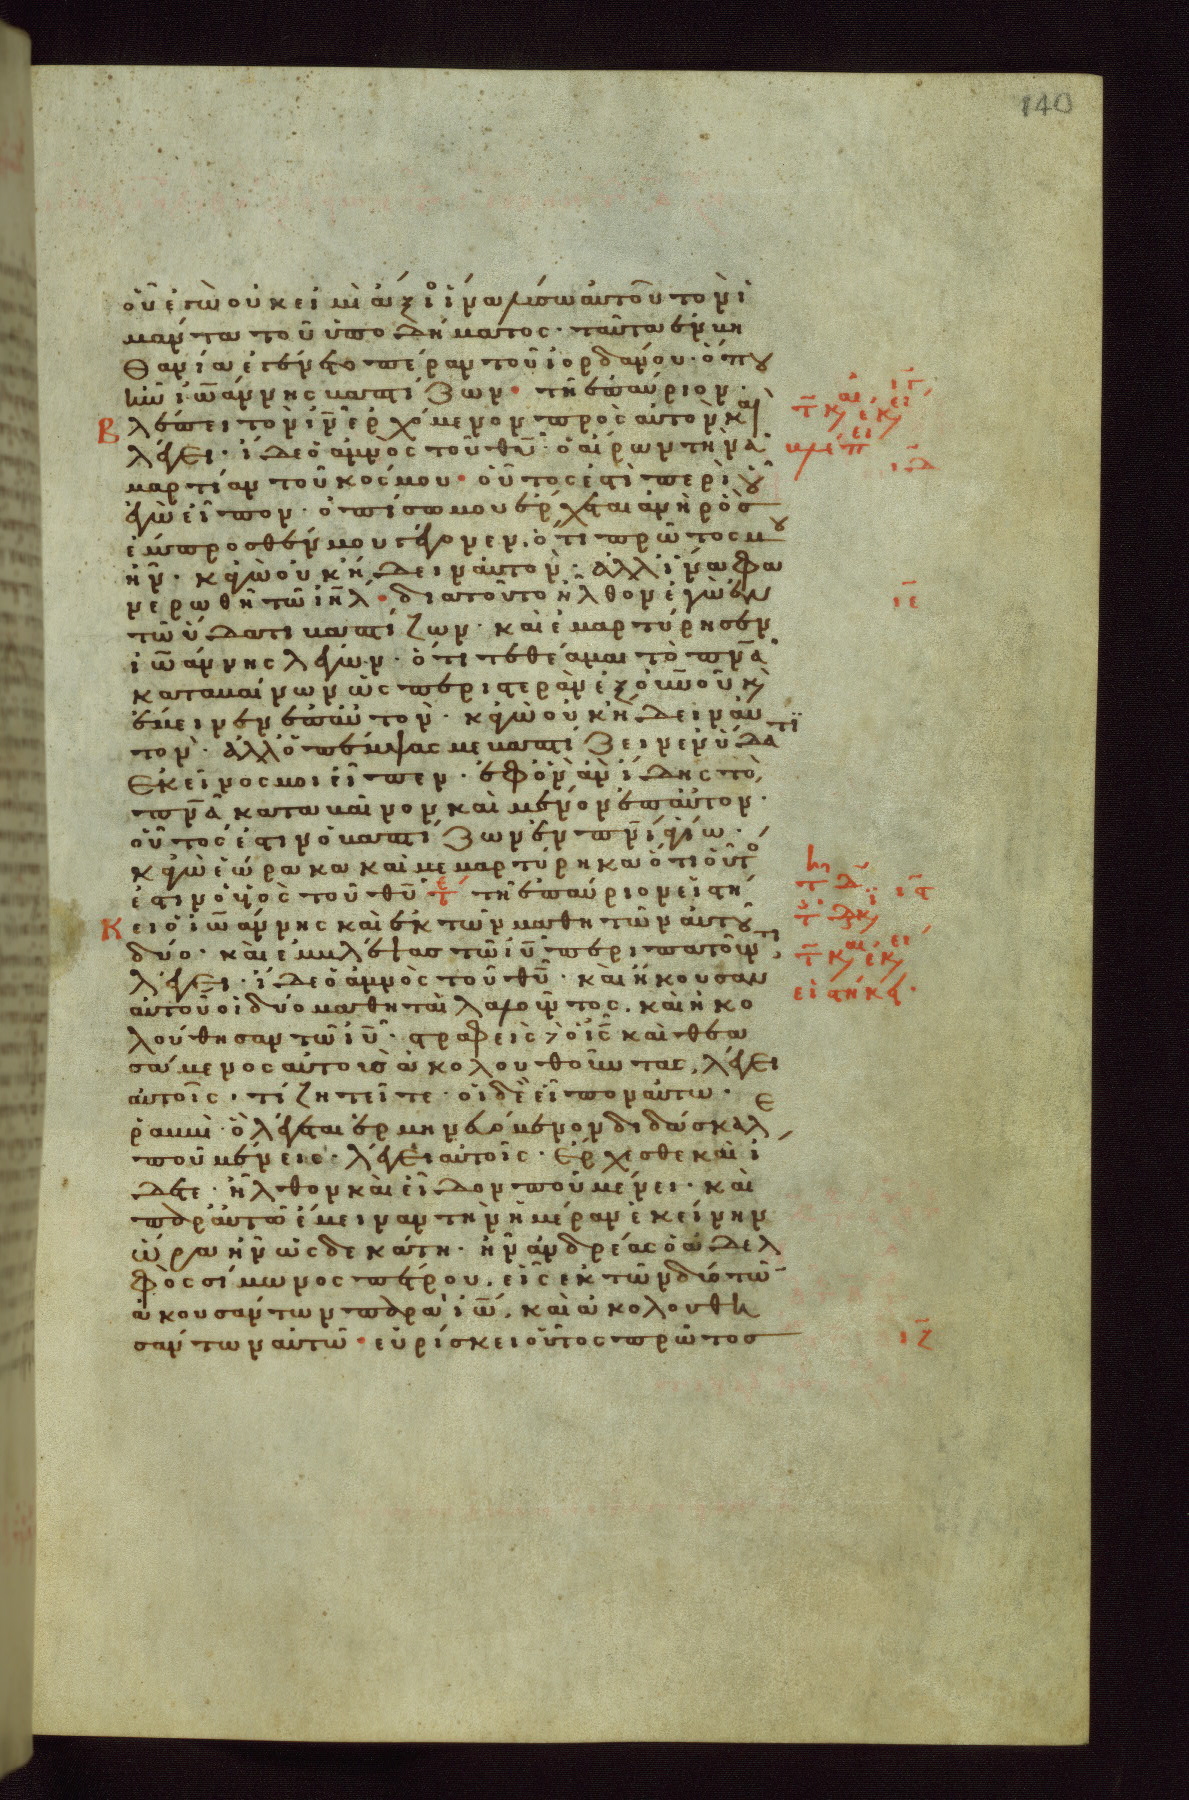 140
οὗ ἐγὼ οὐκ εἰμὶ ἄξιος ἵνα λύσω αὐτοῦ τὸν ἱ
μάντα τοῦ ὑποδήματος · ταῦτα ἐν βη
θανία ἐγένετο πέραν τοῦ ἰορδάνου · ὅπου
ἦν ἰωάννης βαπτίζων · τῆ ἐπαύριον ·
Βλέπει τὸν ιν ἐρχόμενον πρὸς αὐτὸν καὶ
λέγει · ἴδε ὁ ἀμνὸς τοῦ θυ · ὁ αἴρων τὴν ἁ
μαρτίαν τοῦ κόσμου · οὗτος ἐστι περὶ οὗ
ἐγὼ εἶπον · ὀπίσω μου ἔρχεται ἀνὴρ ὃς
ἔμπροσθέν μου γέγονεν · ὅτι πρῶτος μου
ἦν · κἀγὼ οὐκ ἤδειν αὐτὸν · ἀλλ ἵνα φα
νερωθῆ τῶ ιηλ · διατοῦτο ἦλθον ἐγὼ ἐν
τῶ ὕδατι βαπτίζων · καὶ ἐμαρτύρησεν
ἰωάννης λέγων · ὅτι τεθέαμαι τὸ πνα
καταβαίνων ὡς περιστερὰν ἐξ οὐνοῦ κὶ
ἔμεινεν ἐπ αὐτὸν · κἀγὼ οὐκ ἤδειν αὐ
τὸν · ἀλλ ὁ πέμψας με βαπτίζειν ἐν ὕδατι
ἐκεῖνος μοι εἶπεν · ἐφ ὃν ἂν ἴδης τὸ
πνα καταβαῖνον καὶ μένον ἐπ αὐτον ·
οὗτος ἐστιν ὁ βαπτίζων ἐν πνι ἁγίω ·
κἀγὼ ἑώρακα καὶ μεμαρτύρηκα ὅτι οὗτος
ἐστιν ὁ υἱὸς τοῦ θυ · τε τῆ ἐπαύριον εἱστή
Κει ὁ ἰωάννης καὶ ἐκ τῶν μαθητῶν αὐτοῦ
δύο · καὶ ἐμβλέψας τῶ ιυ περιπατοῦντι
λέγει · ἴδε ὁ ἀμνὸς τοῦ θυ · καὶ ἤκουσαν
αὐτοῦ οἱ δύο μαθηταὶ λαλοῦντος · καὶ ἠκο
λούθησαν τῶ ιυ · στραφεὶς δὲ ὁ ις καὶ θεα
σάμενος αὐτοὺς ἀκολουθοῦντας, λέγει
αὐτοῖς · τί ζητεῖτε · οἱ δὲ εἶπον αὐτω ·
ῥαββὶ · ὃ λέγεται ἑρμηνευόμενον διδάσκαλε
ποῦ μένεις · λέγει αὐτοῖς · ἔρχεσθε καὶ ἴ
δετε · ἦλθον καὶ εἶδον ποῦ μένει · καὶ
παρ αὐτῶ ἔμειναν τὴν ἡμέραν ἐκείνην
ὥρα ἦν ὡς δεκάτη · ἦν ἀνδρέας ὁ ἀδελ
φὸς σίμωνος πέτρου, εἷς ἐκ τῶν δύο τῶν
ἀκουσάντων παρα ἰω, καὶ ἀκολουθη
σάντων αὐτῶ · εὑρίσκει οὗτος πρῶτος
ιγ
ιδ
ιε
ις
ιζ